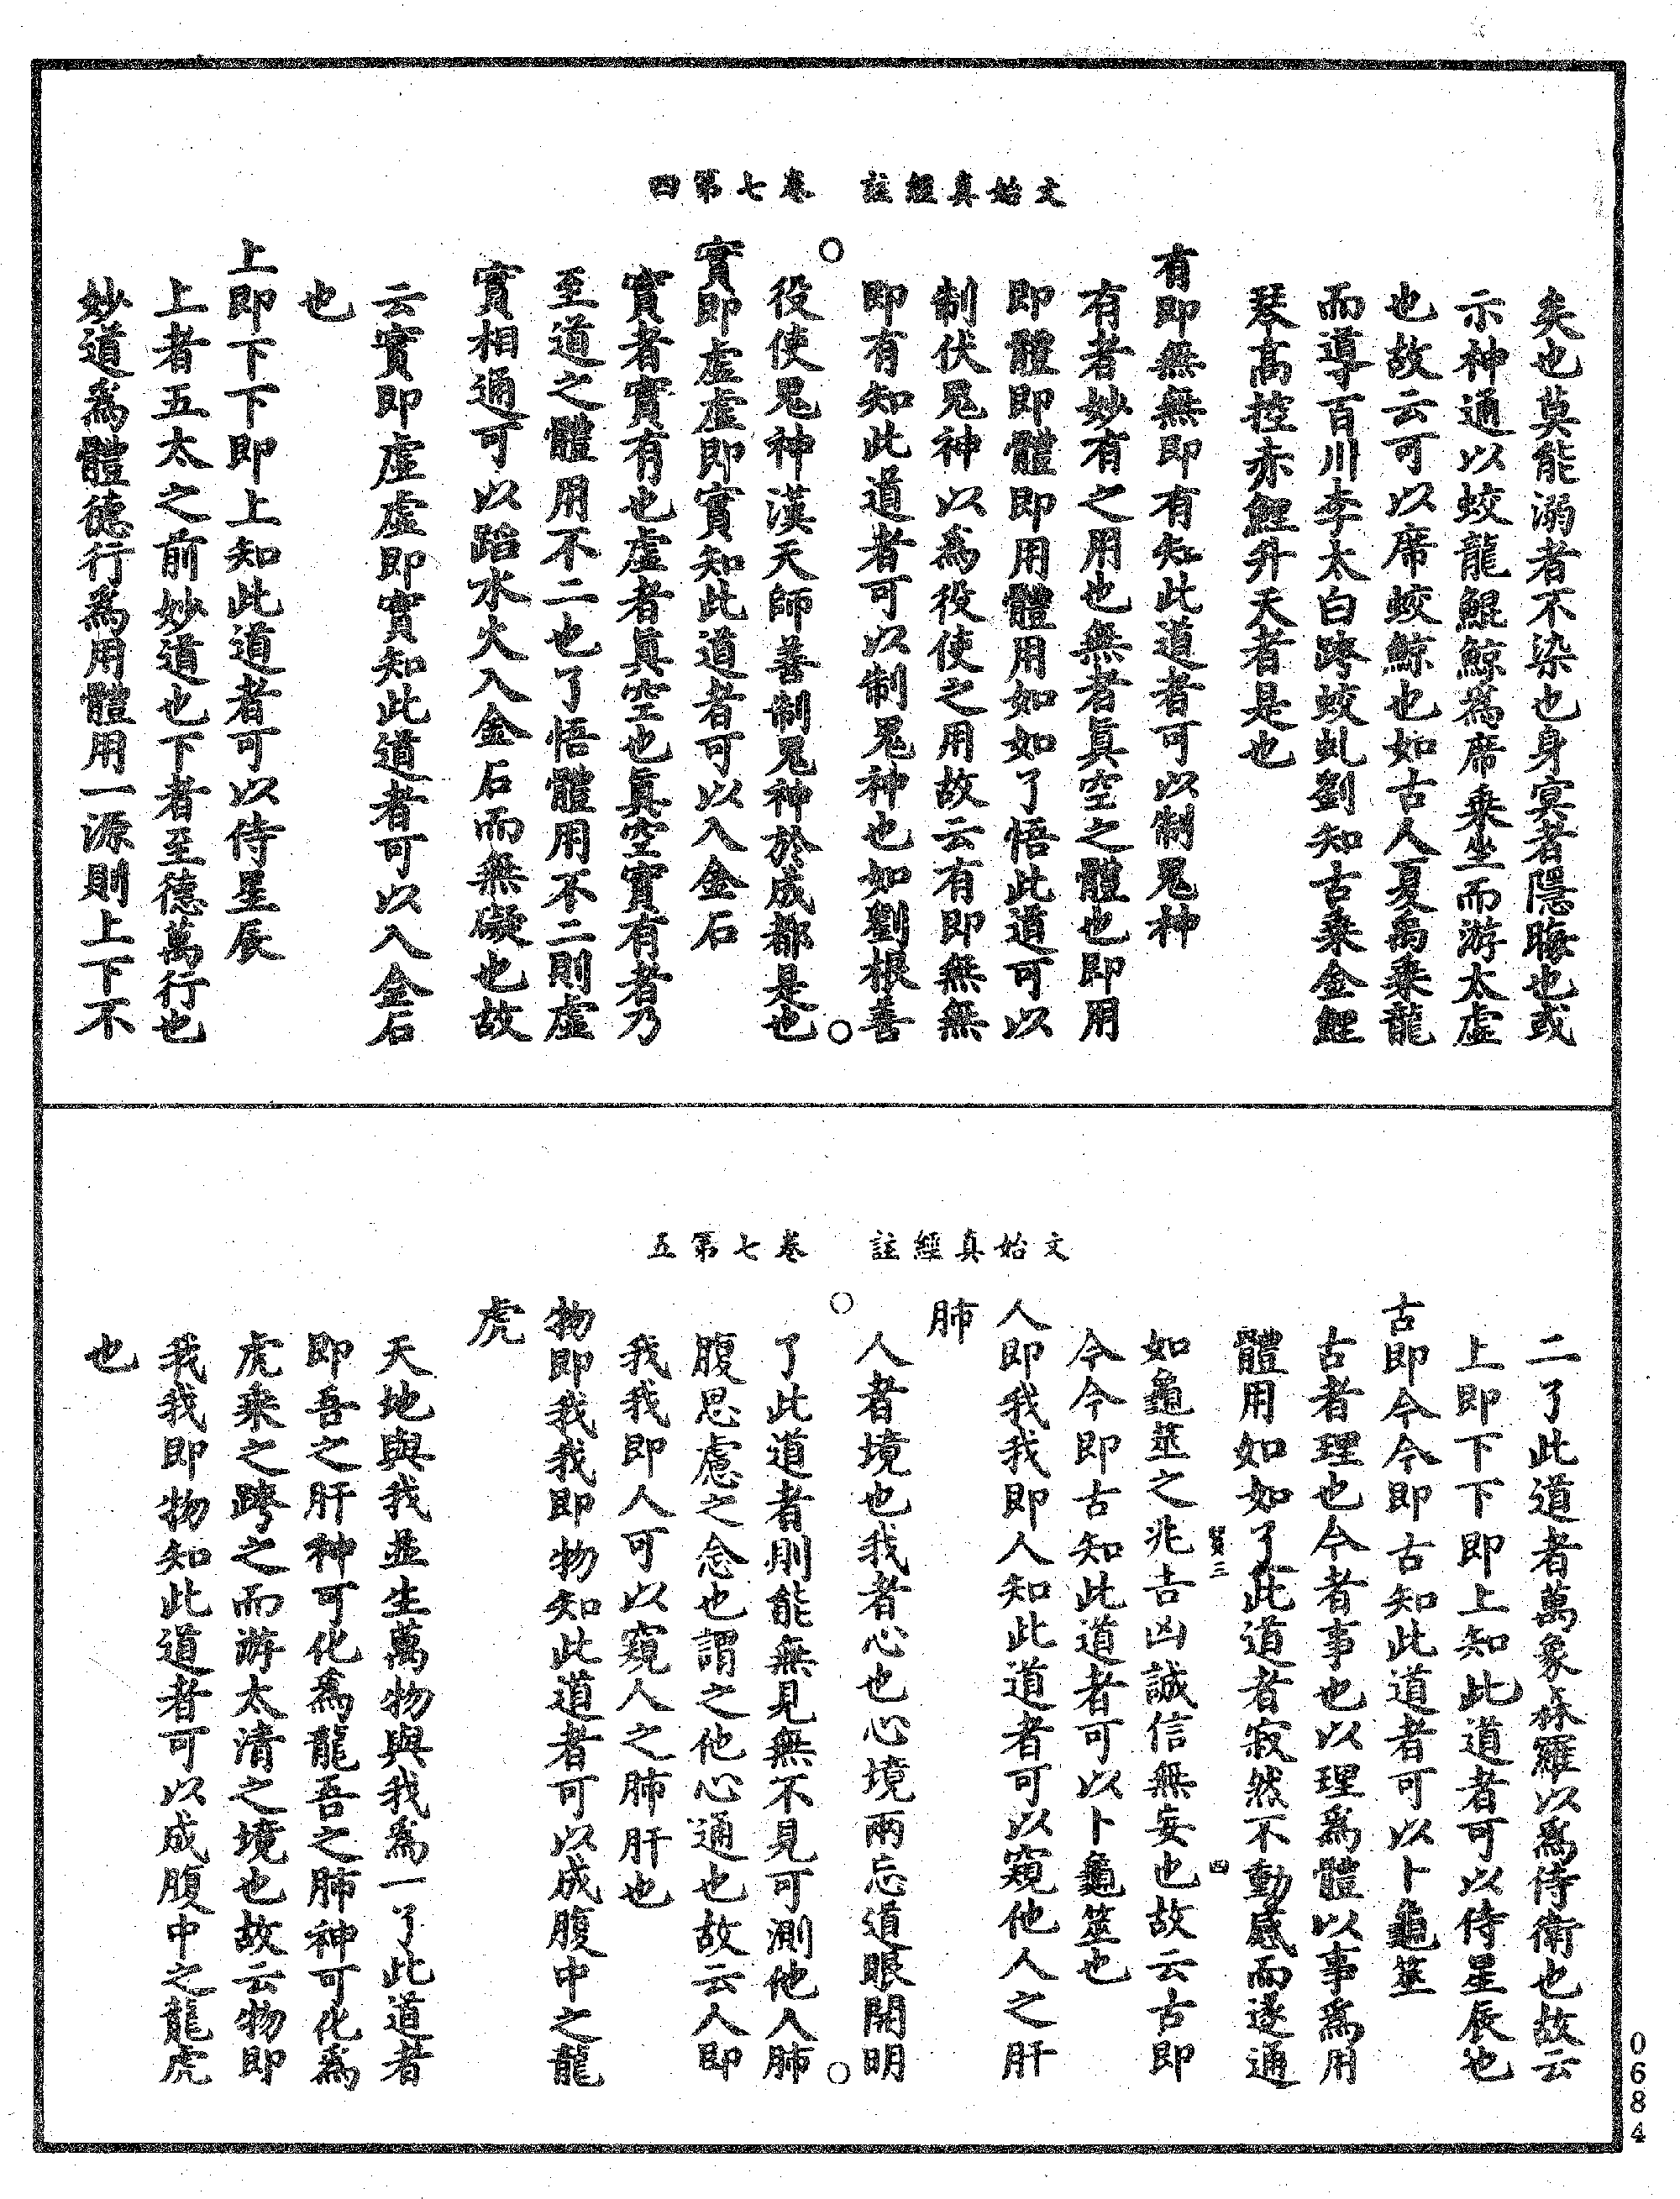 文始真經註　卷七第四
矣也莫能溺者不染也身冥者隱晦也或
示神通以蛟龍鯤鯨為席乘坐而游太虛
也故云可以席蛟鯨也如古人夏禹乘龍
而導百川李太白跨蛟虬劉知古乘金鯉
琴高控赤鯉升天者是也
有即無無即有知此道者可以制鬼神
有者妙有之用也無者真空之體也即用
即體即體即用體用如如了悟此道可以
制伏鬼神以為役使之用故云有即無無
即有知此道者可以制鬼神也如劉根善
役使鬼神漢天師善制鬼神於成都是也
實即虛虛即實知此道者可以入金石
實者實有也虛者真空也真空實有者乃
至道之體用不二也了悟體用不二則虛
實相通可以蹈水火入金石而無礙也故
云實即虛虛即實知此道者可以入金石
也
上即下下即上知此道者可以侍星辰
上者五太之前妙道也下者至德萬行也
妙道為體德行為用體用一源則上下不
文始真經註　卷七第五
二了此道者萬象森羅以為侍衛也故云
上即下下即上知此道者可以侍星辰也
古即今今即古知此道者可以卜龜筮
古者理也今者事也以理為體以事為用
體用如如了此道者寂然不動感而遂通
賢三　四
如龜筮之兆吉凶誠信無妄也故云古即
今今即古知此道者可以卜龜筮也
人即我我即人知此道者可以窺他人之肝
肺
人者境也我者心也心境兩忘道眼開明
了此道者則能無見無不見可測他人肺
腹思慮之念也謂之他心通也故云人即
我我即人可以窺人之肺肝也
物即我我即物知此道者可以成腹中之龍
虎
天地與我並生萬物與我為一了此道者
即吾之肝神可化為龍吾之肺神可化為
虎乘之跨之而游太清之境也故云物即
我我即物知此道者可以成腹中之龍虎
也
0684